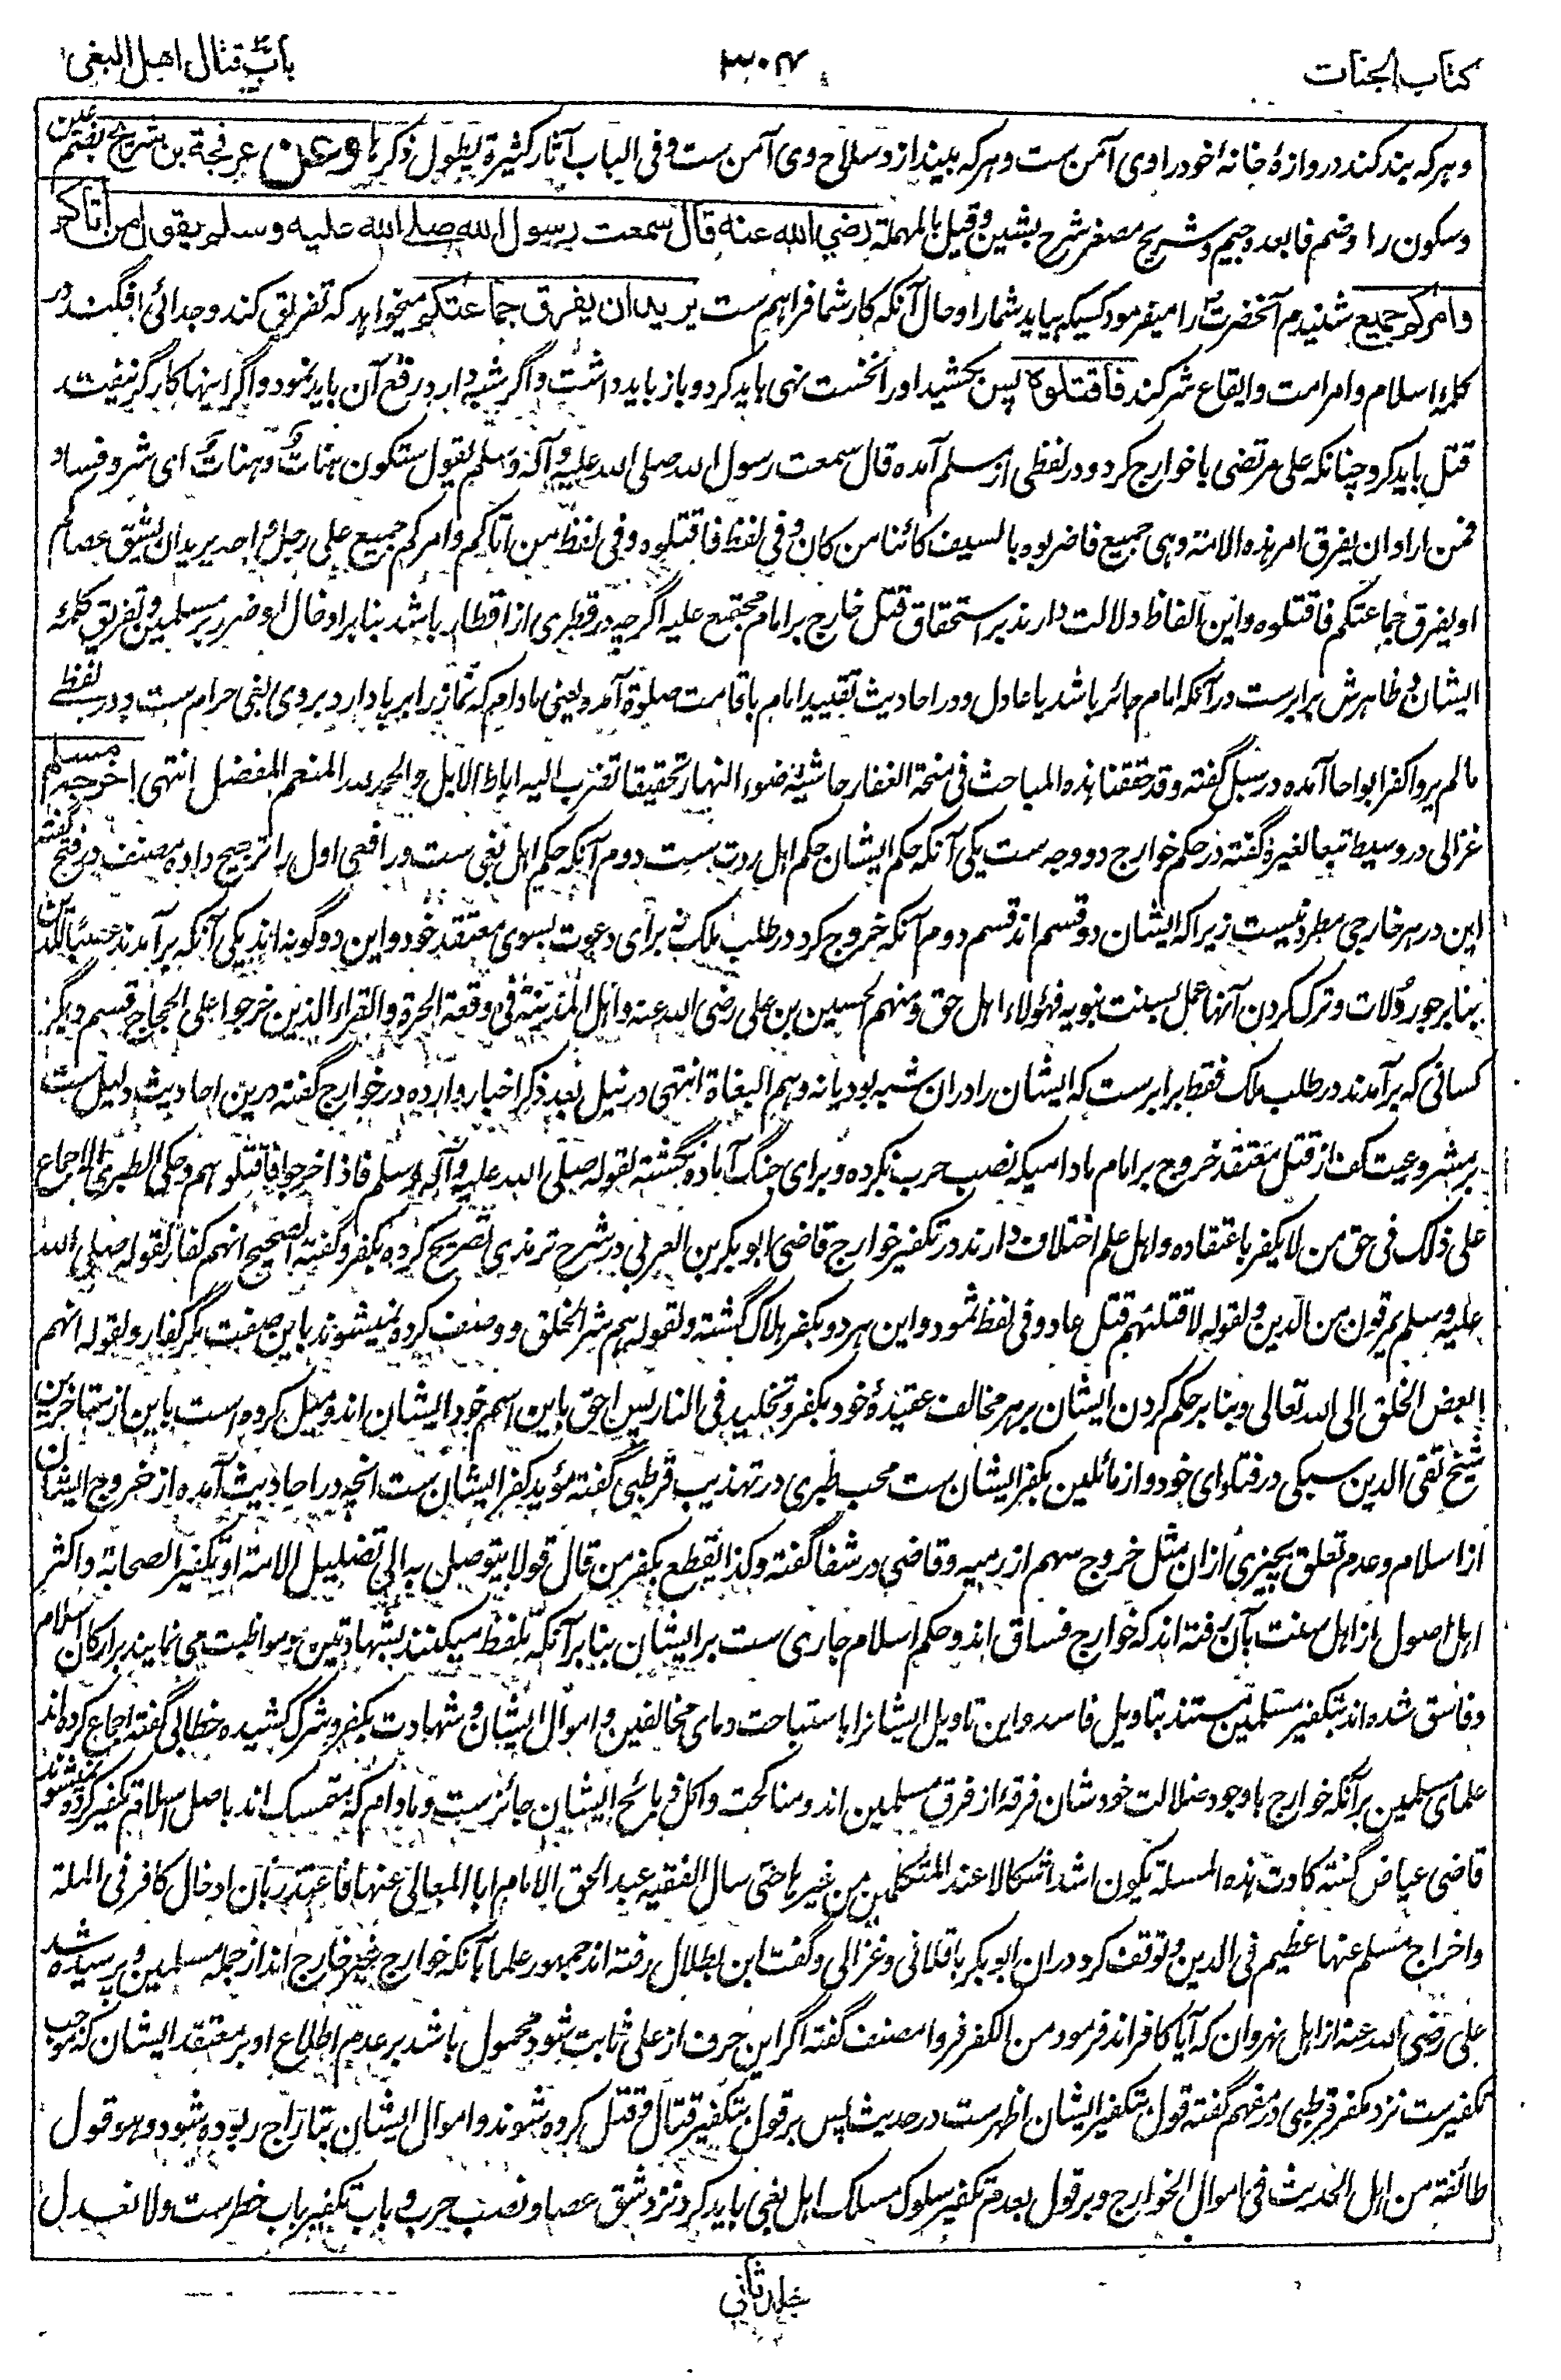 کتاب الجنات
۳۰۴
باب قتال اهل البغی
وهرکه بند کند دروازهٔ خانهٔ خود را وی آمن ست وهرکه بیندازد سلاح وی آمن ست وفی الباب آثار کثیرة یطول ذکرها وعن عرفجة بن شریح بفتح عین
وسکون را وضم فا بعده جیم وشریح مصغر شرح بشین وقیل بالمهملة رضی الله عنه قال سمعت رسول الله صلی الله علیه وسلم یقول من اتاکم
وامرکم جمیع شنیدم آنحضرت را میفرمود کسیکه بیاید شما را وحال آنکه کار شما فراهم ست یرید ان یفرق جماعتکم میخواهد که تفریق کند وجدائی افگند در
کلمهٔ اسلام وامر امت وایقاع شر کند فاقتلوه پس بکشید او را نخست نهی باید کرد وباز باید داشت واگر شبه دارد رفع آن باید نمود واگر اینها کارگر نیفتد
قتل باید کرد چنانکه علی مرتضی با خوارج کرد ودر لفظی از مسلم آمده قال سمعت رسول الله صلی الله علیه وآله وسلم یقول ستکون هنات وهنات ای شر وفساد
فمن اراد ان یفرق امر هذه الامة وهی جمیع فاضربوه بالسیف کائنا من کان وفی لفظ فاقتلوه وفی لفظ من اتاکم وامرکم جمیع علی رجل واحد یرید ان یشق عصاکم
او یفرق جماعتکم فاقتلوه واین الفاظ دلالت دارند بر استحقاق قتل خارج بر امام مجتمع علیه اگرچه در قطری از اقطار باشد بنا بر ادخال او ضرر بر مسلمین وتفریق کلمهٔ
ایشان وظاهرش برابرست در آنکه امام جائر باشد یا عادل ودر احادیث تقیید امام باقامت صلوة آمده یعنی مادام که نماز را برپا دارد بروی بغی حرام ست ودر لفظے
مالم یروا کفرا بواحا آمده در سبل گفته وقد حققنا هذه المباحث فی منحة الغفار حاشیة ضوء النهار تحقیقا تضرب الیه اباط الابل والحمد لله المنعم المفضل انتهی اخرجه مسلم
غزالی در وسیط تبعا لغیره گفته در حکم خوارج دو وجه ست یکی آنکه حکم ایشان حکم اهل ردت ست دوم آنکه حکم اهل بغی ست ورافعی اول را ترجیح داده مصنف در فتح گفته
این در هر خارجی مطرد نیست زیراکه ایشان دو قسم اند قسم دوم آنکه خروج کرد در طلب ملک نه برای دعوت بسوی معتقد خود واین دو گونه اند یکی آنکه برآمدند غضبا للدین
بنا بر جور ولات وترک کردن آنها عمل بسنت نبویه فهؤلاء اهل حق ومنهم الحسین بن علی رضی الله عنه واهل المدینة فی وقعة الحرة والقراء الذین خرجوا علی الحجاج قسم دیگر
کسانی که برآمدند در طلب ملک فقط برابرست که ایشان را دران شبه بود یا نه وهم البغاة انتهی در نیل بعد ذکر اخبار وارده در خوارج گفته درین احادیث دلیل ست
بر مشروعیت کف از قتل معتقد خروج بر امام مادامیکه نصب حرب نکرده وبرای جنگ آماده نگشته لقوله صلی الله علیه وآله وسلم فاذا خرجوا فاقتلوهم وحکی الطبری الاجماع
علی ذلک فی حق من لا یکفر باعتقاده واهل علم اختلاف دارند در تکفیر خوارج قاضی ابو بکر بن العربی در شرح ترمذی تصریح کرده بکفر وگفته الصحیح انهم کفار لقوله صلی الله
علیه وسلم یمرقون من الدین ولقوله لاقتلنهم قتل عاد وفی لفظ ثمود واین هر دو بکفر هلاک گشته ولقوله هم شر الخلق ووصف کرده نمیشوند باین صفت مگر کفار ولقوله انهم
ابغض الخلق الی الله تعالی وبنا بر حکم کردن ایشان بر هر مخالف عقیدهٔ خود بکفر وتخلید فی النار پس احق باین اسم خود ایشان اند ومیل کرده است باین از متاخرین
شیخ تقی الدین سبکی در فتاوای خود واز مائلین بکفر ایشان ست محب طبری در تهذیب قرطبی گفته مؤید کفر ایشان ست انچه در احادیث آمده از خروج ایشان
از اسلام وعدم تعلق بچیزی ازان مثل خروج سهم از رمیه وقاضی در شفا گفته وکذا یقطع بکفر من قال قولا یتوصل به الی تضلیل الامة او تکفیر الصحابة واکثر
اهل اصول از اهل سنت بآن رفته اند که خوارج فساق اند وحکم اسلام جاری ست بر ایشان بنا بر آنکه تلفظ میکنند بشهادتین ومواظبت می نمایند بر ارکان اسلام
وفاسق شده اند بتکفیر مسلمین مستند بتاویل فاسد واین تاویل ایشانرا باستباحت دمای مخالفین واموال ایشان وشهادت بکفر وشرک کشیده خطابی گفته اجماع کرده اند
علمای مسلمین بر آنکه خوارج باوجود ضلالت خودشان فرقهٔ از فرق مسلمین اند ومناکحت واکل ذبائح ایشان جائزست ومادام که متمسک اند باصل اسلام تکفیر کرده نمیشوند
قاضی عیاض گفته کادت هذه المسئلة یکون اشد اشکالا عند المتکلمین من غیرها حتی سال الفقیه عبد الحق الامام ابا المعالی عنها فاعتذر بان ادخال کافر فی الملة
واخراج مسلم عنها عظیم فی الدین وتوقف کرد دران ابو بکر باقلانی وغزالی وگفت ابن بطال رفته اند جمهور علما بآنکه خوارج غیر خارج اند از جمله مسلمین وپرسیده شد
علی رضی الله عنه از اهل نهروان که آیا کافر اند فرمود من الکفر فروا مصنف گفته اگر این حرف از علی ثابت شود محمول باشد بر عدم اطلاع او بر معتقد ایشان که موجب
تکفیرست نزد مکفر قرطبی در مفهم گفته قول بتکفیر ایشان اظهرست در حدیث پس بر قول بتکفیر قتال وقتل کرده شوند واموال ایشان بتاراج ربوده شود وهو قول
طائفة من اهل الحدیث فی اموال الخوارج وبر قول بعدم تکفیر سلوک مسلک اهل بغی باید کرد نزد شق عصا ونصب حرب وباب تکفیر باب خطرست ولا نعدل
جلد ثانی